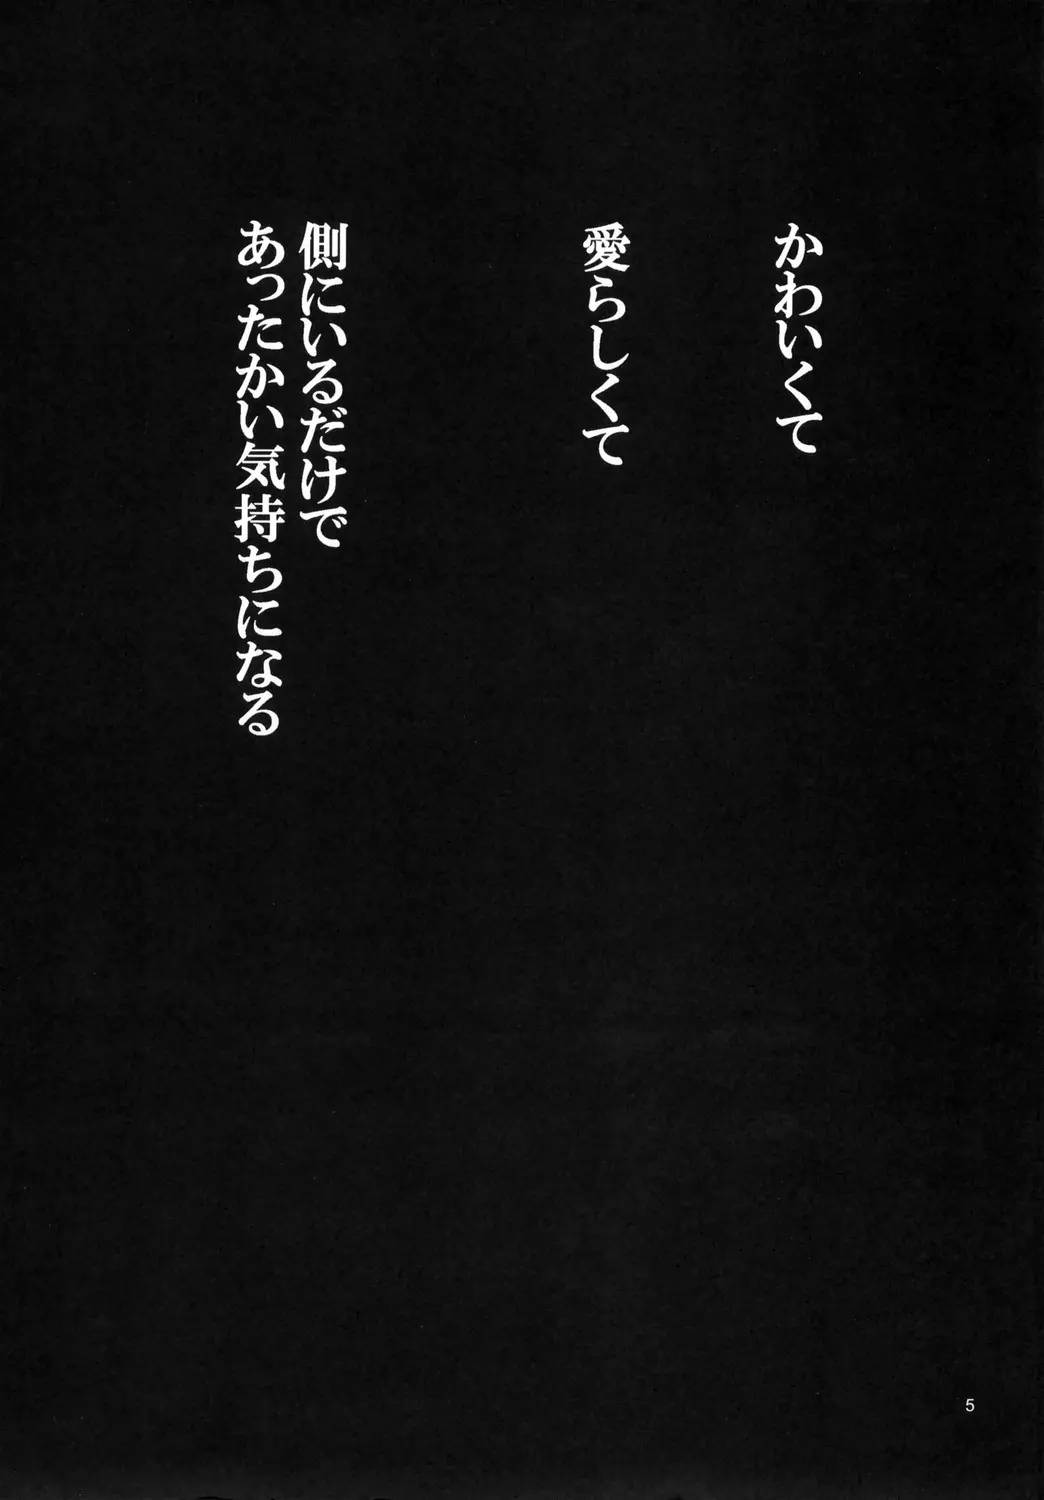 かわいくて
愛らしくて
側にいるだけで
あったかい気持ちになる
5